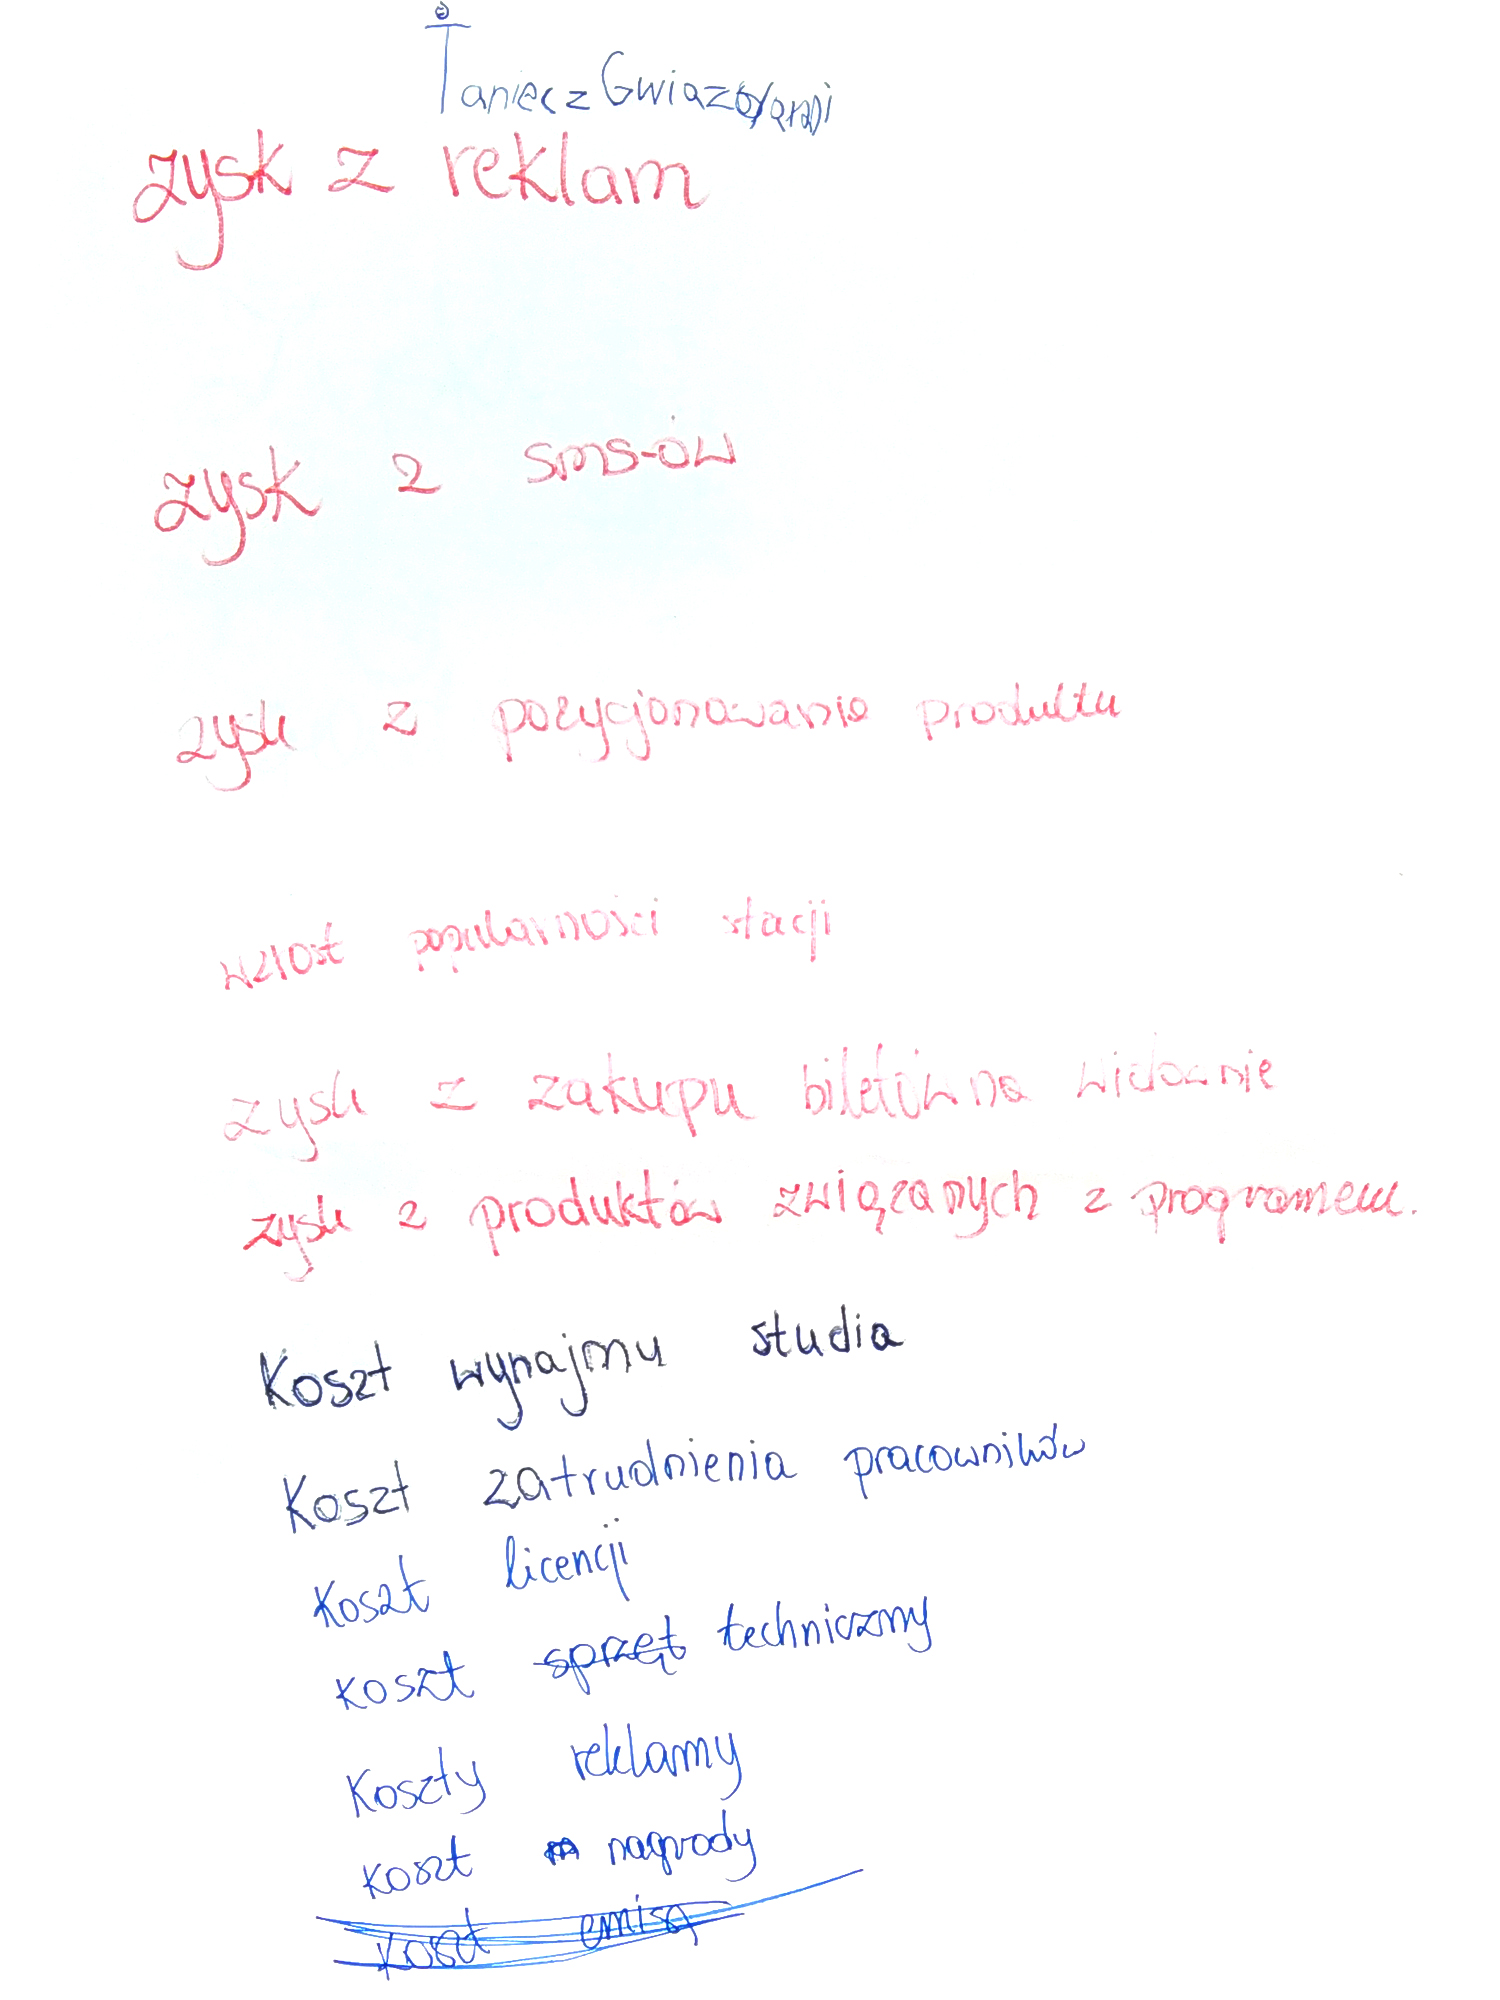 Taniec z Gwiazdami
zysk z reklam
zysk z sms-ów
zysk z pozycjonowanie produktu
wzrost popularności stacji
zysk z zakupu biletów na widownie
zysk z produktów związanych z programem.
Koszt wynajmu studia
Koszt zatrudnienia pracowników
Koszt licencji
koszt sprzęt techniczny
Koszty reklamy
koszt nagrody
koszt emisą